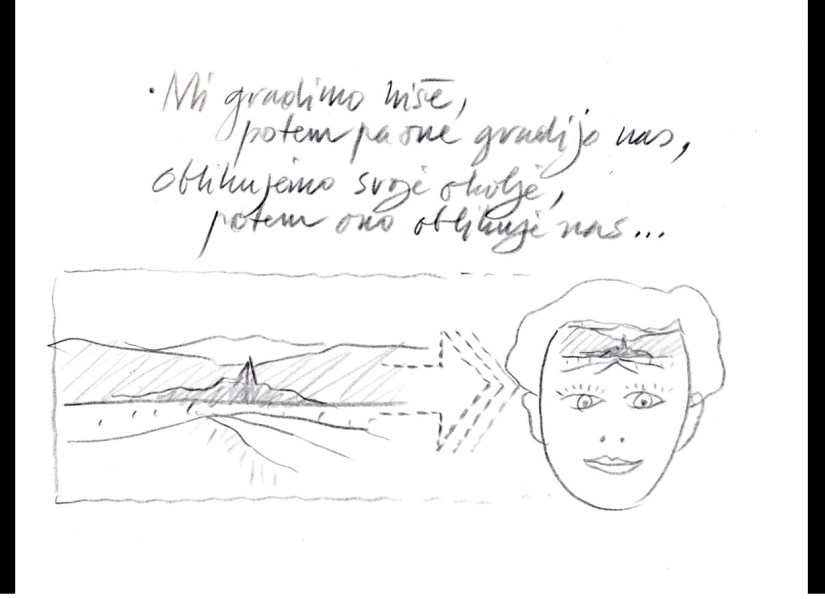 · Mi gradimo hiše,
potem pa one gradijo nas,
Oblikujemo svoje okolje,
potem ono oblikuje nas...